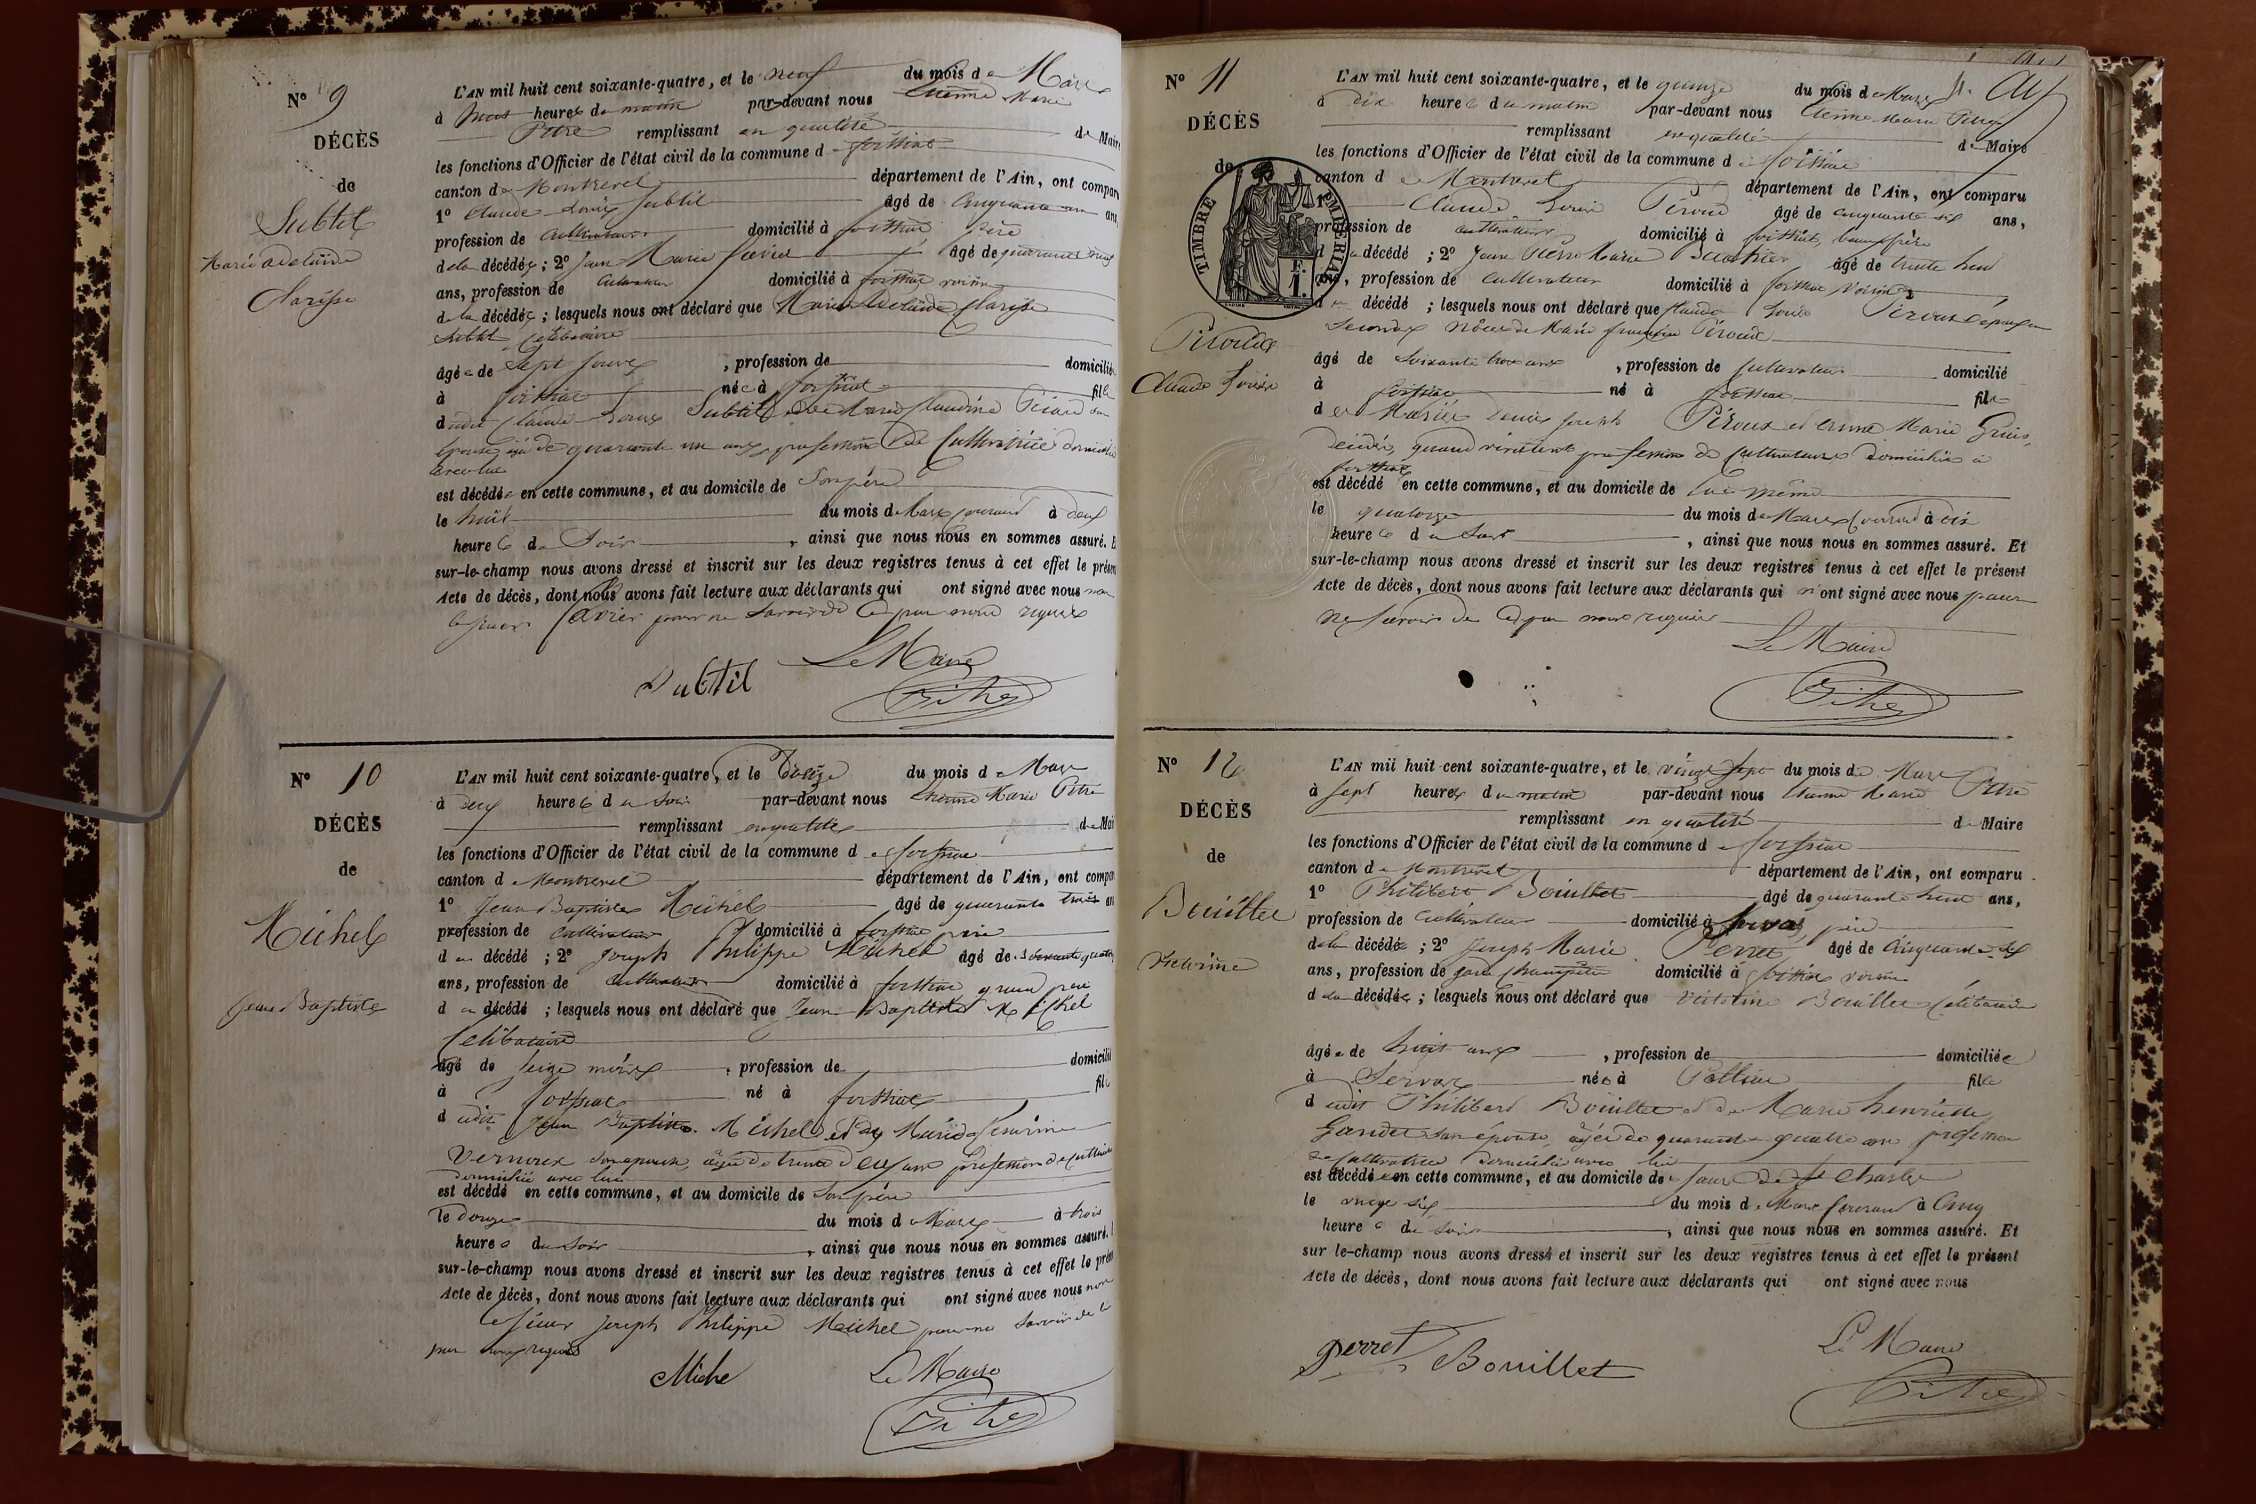 N° 9
DÉCÈS
de
Subtil
Marie adelaïde
Clarisse
L'AN mil huit cent soixante-quatre, et le neuf du mois de Mars
à heures du matin par-devant nous Etienne Marie
Pitre remplissant en qualité de Maire
les fonctions d'Officier de l'état civil de la commune de foissiat
canton de Montrevel département de l'Ain, ont comparu
1° Claude Louis Subtil âgé de Cinquante un ans,
profession de Cultivateur domicilié à foissiat père
de la décédée ; 2° Jean Marie favier âgé de quarante neuf
ans, profession de Cultivateur domicilié à foissiat voisin
de la décédée ; lesquels nous ont déclaré que Marie Adelaïde Clarisse
Subtil Célibataire
âgée de Sept jours , profession de domiciliée
à foissiat née à foissiat fille
dudit Claude Louis Subtil et de Marie Claudine son
épouse âgée de quarante un ans profession de Cultivatrice domiciliée
avec lui
est décédée en cette commune, et au domicile de Son père
le huit du mois de Mars courant à deux
heures du Soir , ainsi que nous nous en sommes assuré. Et
sur-le-champ nous avons dressé et inscrit sur les deux registres tenus à cet effet le présent
Acte de décès, dont nous avons fait lecture aux déclarants qui ont signé avec nous non
le sieur favier pour ne Savoir de ce par nous requis
Subtil Le Maire
Pitre
N° 10
DÉCÈS
de
Michel
Jean Baptiste
L'AN mil huit cent soixante-quatre, et le Douze du mois de Mars
à heures du Soir par-devant nous Etienne Marie Pitre
remplissant en qualité de Maire
les fonctions d'Officier de l'état civil de la commune de foissiat
canton de Montrevel département de l'Ain, ont comparu
1° Jean Baptiste Michel âgé de quarante trois ans
profession de Cultivateur domicilié à foissiat père
du décédé ; 2° Joseph Philippe Michel âgé de soixante quatorze
ans, profession de Cultivateur domicilié à foissiat grand père
du décédé ; lesquels nous ont déclaré que Jean Baptiste Michel
Célibataire
âgé de Seize mois , profession de domicilié
à foissiat né à foissiat fils
dudit Jean Baptiste Michel et de Marie
Vernoux son épouse, âgée de trente deux ans profession de Cultivatrice
domiciliée avec lui
est décédé en cette commune, et au domicile de Son père
le douze du mois de Mars à trois
heures du Soir , ainsi que nous nous en sommes assuré.
sur-le-champ nous avons dressé et inscrit sur les deux registres tenus à cet effet le présent
Acte de décès, dont nous avons fait lecture aux déclarants qui ont signé avec nous non
le sieur Joseph Philippe Michel pour ne Savoir de ce
par nous requis
Miche Le Maire
Pitre
N° 11
DÉCÈS
de
TIMBRE IMPÉRIAL
F.
1.
Péroux
Claude Louis
L'AN mil huit cent soixante-quatre, et le quinze du mois de Mars
à dix heures du matin par-devant nous Etienne Marie Pitre
remplissant en qualité de Maire
les fonctions d'Officier de l'état civil de la commune de foissiat
canton de Montrevel département de l'Ain, ont comparu
1° Claude Louis Péroud âgé de cinquante six ans,
profession de cultivateur domicilié à foissiat, beau frère
du décédé ; 2° Jean Pierre Marie âgé de trente huit
ans, profession de Cultivateur domicilié à foissiat Voisin
du décédé ; lesquels nous ont déclaré que Claude Louis Péroux époux en
Secondes Nôces de Marie Péroud
âgé de Soixante trois ans , profession de Cultivateur domicilié
à foissiat né à foissiat fils
des Mariés Denis Joseph Péroux et Anne Marie
décédés, quand vivaient profession de Cultivateurs domiciliés à
foissiat
est décédé en cette commune, et au domicile de lui même
le quatorze du mois de Mars Courant à dix
heures du Soir , ainsi que nous nous en sommes assuré. Et
sur-le-champ nous avons dressé et inscrit sur les deux registres tenus à cet effet le présent
Acte de décès, dont nous avons fait lecture aux déclarants qui n'ont signé avec nous pour
ne Savoir de ce par nous requis
Le Maire
Pitre
N° 12
DÉCÈS
de
Bouillet
Victorine
L'AN mil huit cent soixante-quatre, et le vingt sept du mois de Mars
à Sept heures du matin par-devant nous Etienne Marie Pitre
remplissant en qualité de Maire
les fonctions d'Officier de l'état civil de la commune de foissiat
canton de Montrevel département de l'Ain, ont comparu
1° Philibert Bouillet âgé de quarante huit ans,
profession de Cultivateur domicilié à Servas, père
de la décédée ; 2° Joseph Marie Perret âgé de Cinquante six
ans, profession de garde champêtre domicilié à foissiat voisin
de la décédée ; lesquels nous ont déclaré que Victorine Bouillet Célibataire
âgée de huit ans , profession de domiciliée
à Servas née à fille
dudit Philibert Bouillet et de Marie henriette
Gandet son épouse, âgée de quarante quatre ans profession
de Cultivatrice domiciliée avec lui
est décédée en cette commune, et au domicile de Sœur de St Charles
le vingt six du mois de Mars Courant à Cinq
heures du Soir , ainsi que nous nous en sommes assuré. Et
sur le-champ nous avons dressé et inscrit sur les deux registres tenus à cet effet le présent
Acte de décès, dont nous avons fait lecture aux déclarants qui ont signé avec nous
Perret Bouillet Le Maire
Pitre